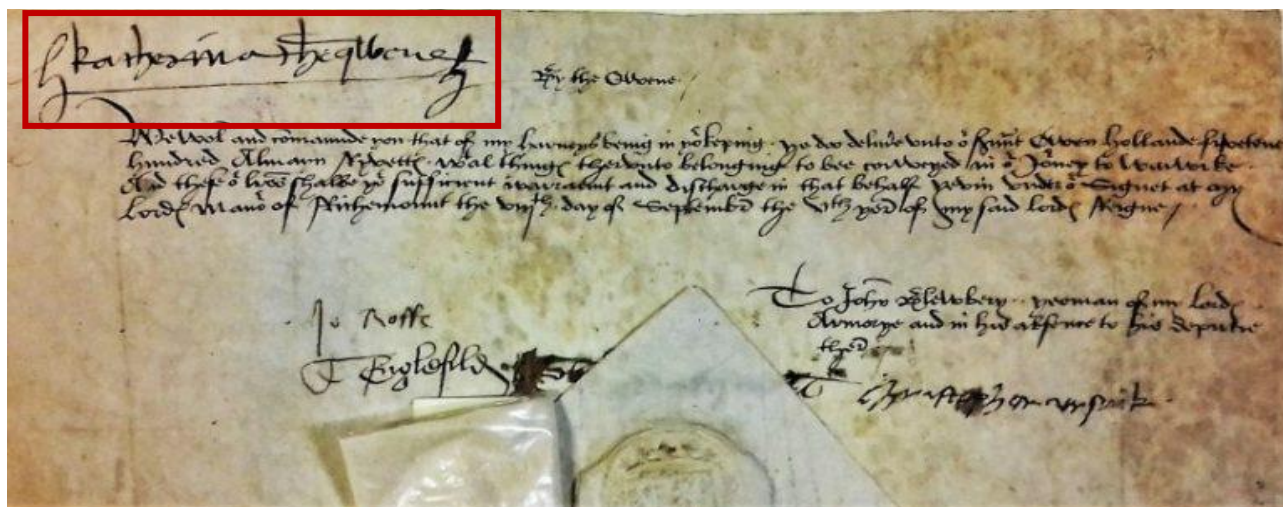 Katherina the qwene
By the Qwene
We wol and comaunde you that of my harneys being in yor keping ye do delivre unto or srvunt Owen hollande fivetene
hundred Almann Ryvetts wt al things therunto belonging to bee conveyed in or Jorney to Warwike
And these or lres shalbe yor sufficient warraunt and discharge in that behalf yevin undre or Signet at my
Lords Manor of Richemount the viijth day of Septembre the vth yere of my said lords Reigne
To John Blewbery yeoman of my lords
Armorye and in his absence to his deputie
there
Jo Roffe
T Englefild
Christopher urswik